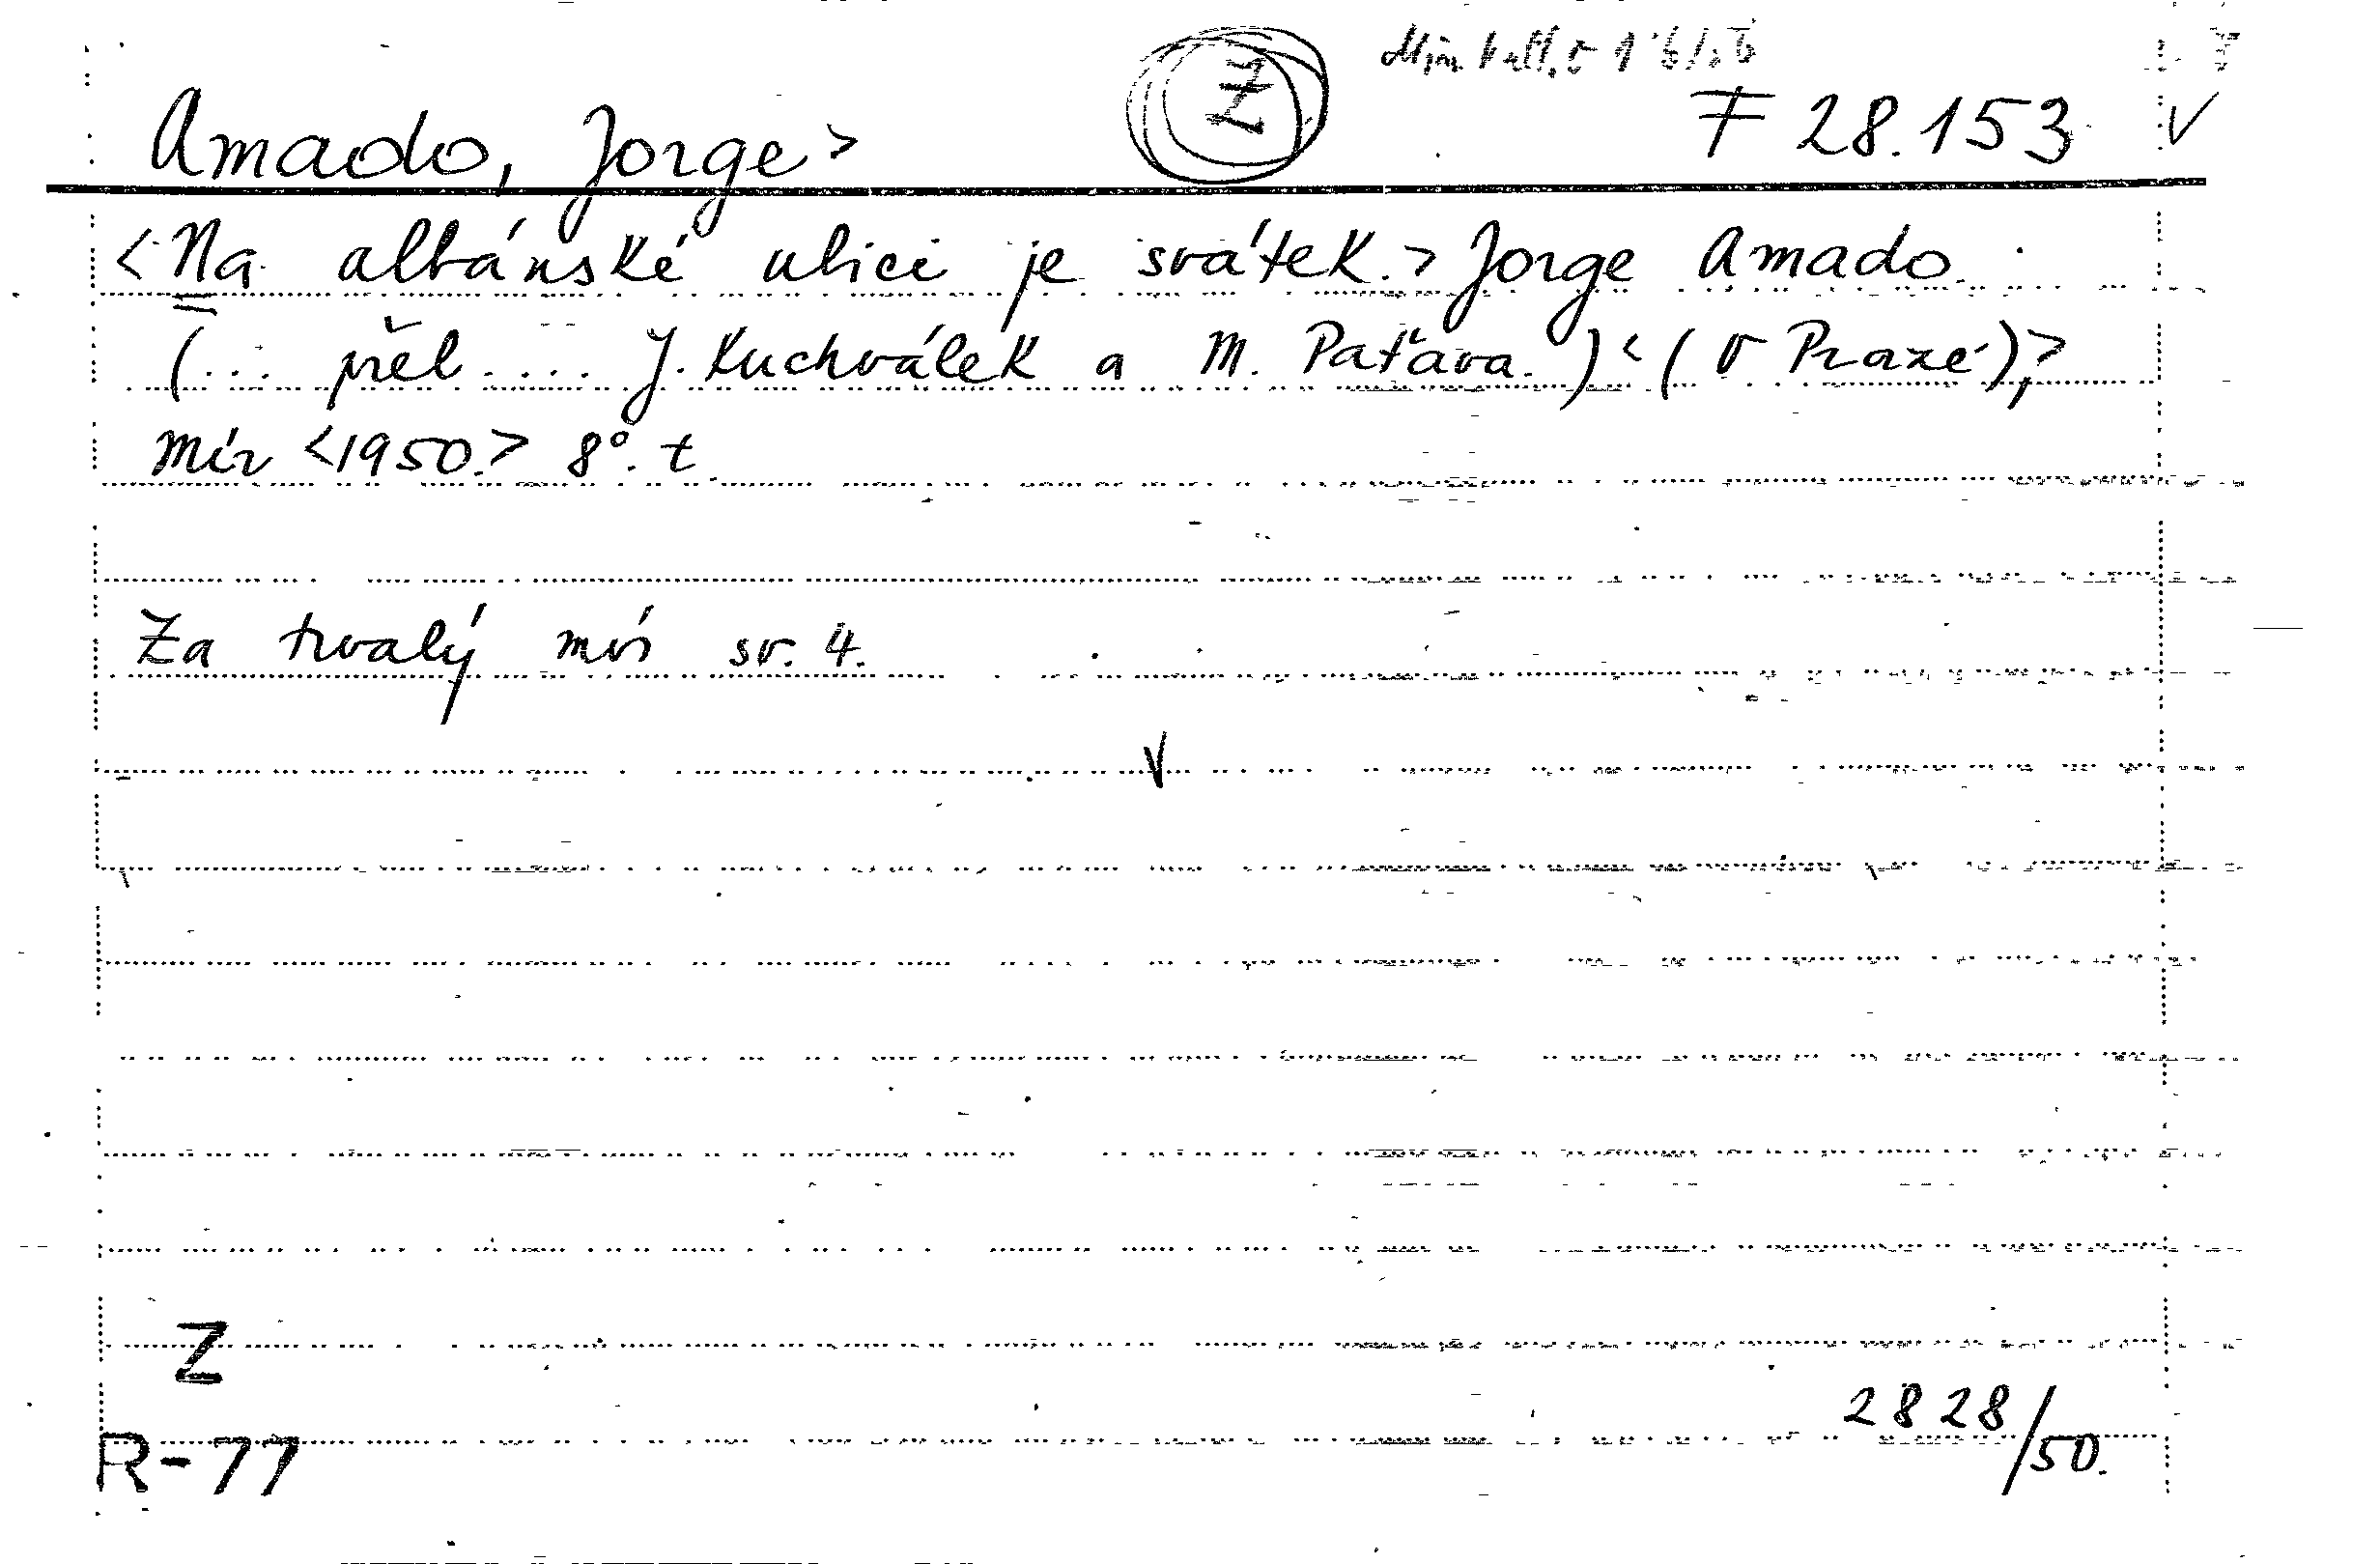 Z
Amado, Jorge> F 28.153
<Na albánské ulici je svátek.> Jorge Amado.
(... přel .... J. Kuchválek a M. Paťava.) <(V Praze),>
Mír <1950.> 8°. t
Za trvalý mír sv. 4.
Z
R-77
2828/50.